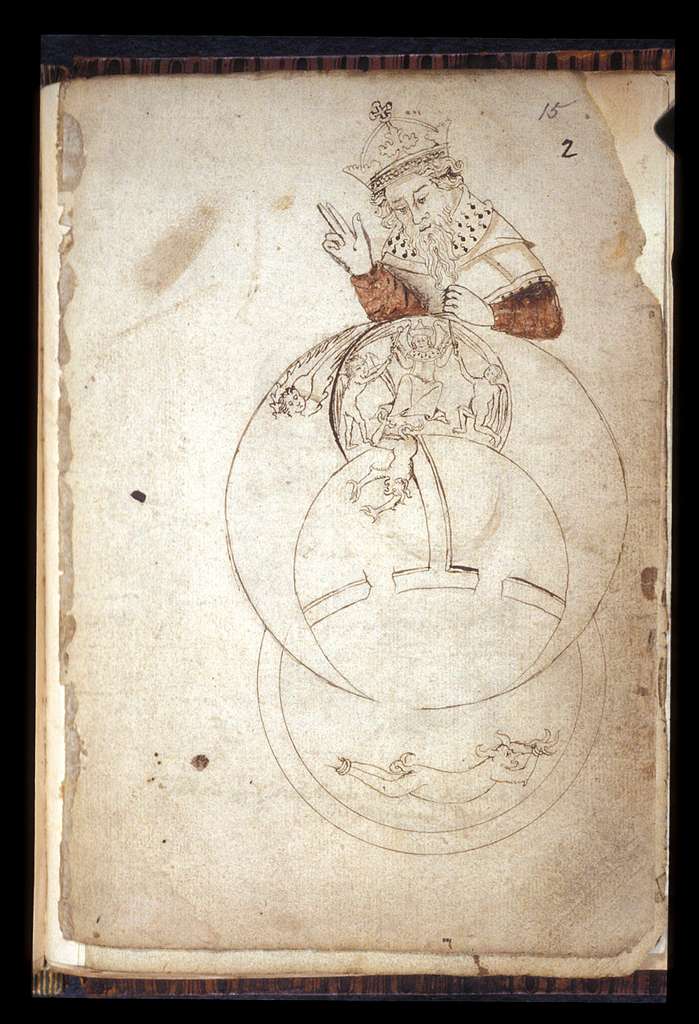 15
2